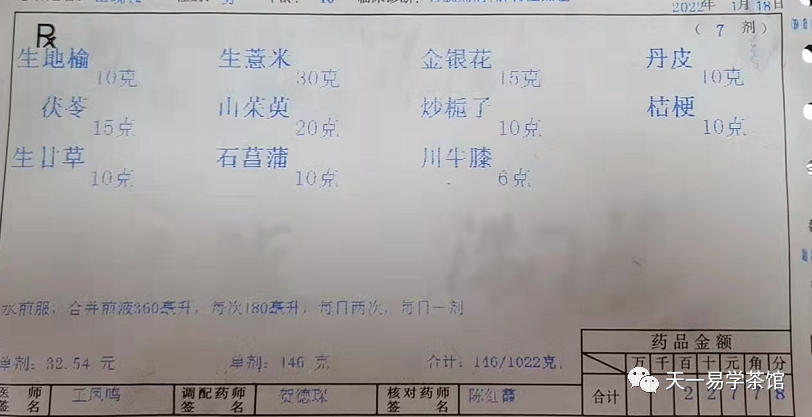 2022年 1月18日
℞
（ 7 剂）
生地榆 生薏米 金银花 丹皮
10克 30克 15克 10克
茯苓 山茱萸 炒栀子 桔梗
15克 20克 10克 10克
生甘草 石菖蒲 川牛膝
10克 10克 6克
水煎服，合并煎液360毫升，每次180毫升，每日两次，每日一剂
药品金额
万千百十元角分
单剂：32.54 元 单剂：146 克 合计：146/1022克
合计 22778
医师签名 王凤鸣 调配药师签名 贺德琛 核对药师签名 陈红霞
天一易学茶馆